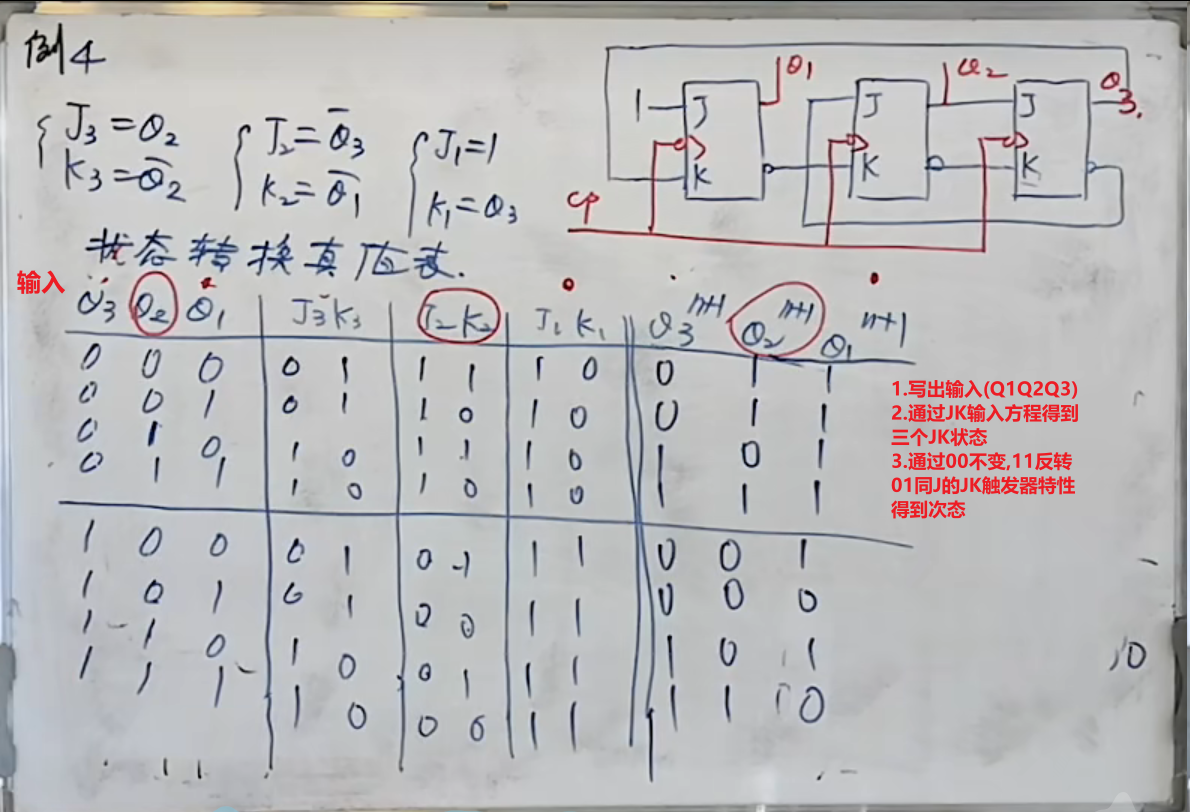 例4
J₃=Q₂ J₂=Q̅₃ J₁=1
K₃=Q̅₂ K₂=Q̅₁ K₁=Q₃
1 J K Q1 J K Q2 J K Q3.
CP
状态转换真值表.
输入
Q₃ Q₂ Q₁ J₃ K₃ J₂ K₂ J₁ K₁ Q₃ⁿ⁺¹ Q₂ⁿ⁺¹ Q₁ⁿ⁺¹
0 0 0 0 1 1 1 1 0 0 1 1
0 0 1 0 1 1 0 1 0 0 1 1
0 1 0 1 0 1 1 1 0 1 0 1
0 1 1 1 0 1 0 1 0 1 1 1
1 0 0 0 1 0 1 1 1 0 0 1
1 0 1 0 1 0 0 1 1 0 0 0
1 1 0 1 0 0 1 1 1 1 0 1
1 1 1 1 0 0 0 1 1 1 1 0
1.写出输入(Q1Q2Q3)
2.通过JK输入方程得到
三个JK状态
3.通过00不变,11反转
01同J的JK触发器特性
得到次态